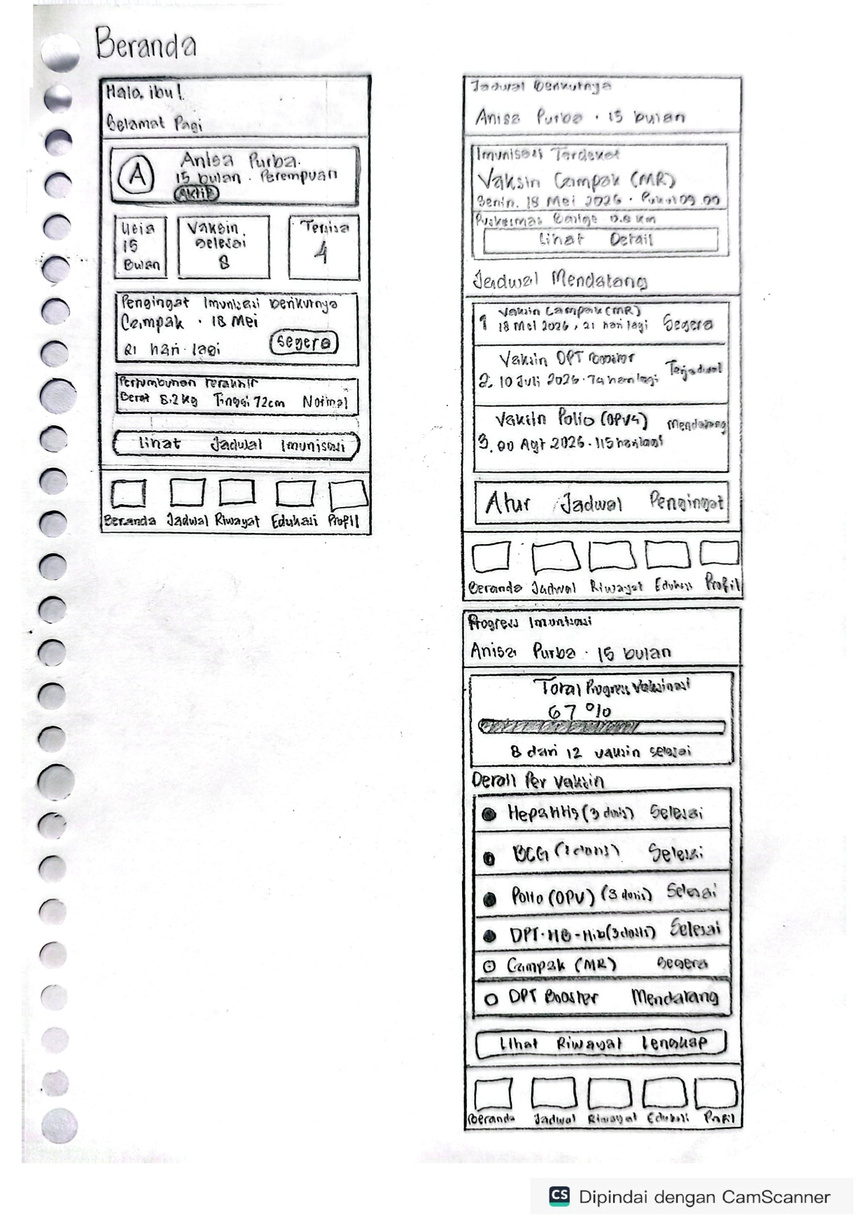 Beranda
Halo, ibu!
Selamat Pagi
A
Anisa Purba.
15 bulan · Perempuan
Aktif
Usia
15
Bulan
Vaksin
selesai
8
Tersisa
4
Pengingat Imunisasi berikutnya
Campak · 18 Mei
21 hari lagi
Segera
Pertumbuhan terakhir
Berat 8.2 kg Tinggi 72cm Normal
Lihat Jadwal Imunisasi
Beranda Jadwal Riwayat Edukasi Profil
Jadwal Berikutnya
Anisa Purba · 15 bulan
Imunisasi Terdekat
Vaksin Campak (MR)
Senin, 18 Mei 2026 · Pukul 09.00
Puskesmas 0.8 km
Lihat Detail
Jadwal Mendatang
1 Vaksin Campak (MR)
18 Mei 2026, 21 hari lagi Segera
Vaksin DPT Booster
2. 10 Juli 2026 · 74 hari lagi Terjadwal
Vaksin Polio (OPV4) Mendatang
3. Agt 2026 · 115 hari lagi
Atur Jadwal Pengingat
Beranda Jadwal Riwayat Edukasi Profil
Progress Imunisasi
Anisa Purba · 15 bulan
Total Progress Vaksinasi
67 %
8 dari 12 vaksin selesai
Detail Per Vaksin
Hepatitis (3 dosis) Selesai
BCG (1 dosis) Selesai
Polio (OPV) (3 dosis) Selesai
DPT-HB-Hib (3 dosis) Selesai
Campak (MR) Segera
DPT Booster Mendatang
Lihat Riwayat Lengkap
Beranda Jadwal Riwayat Edukasi Profil
CS Dipindai dengan CamScanner